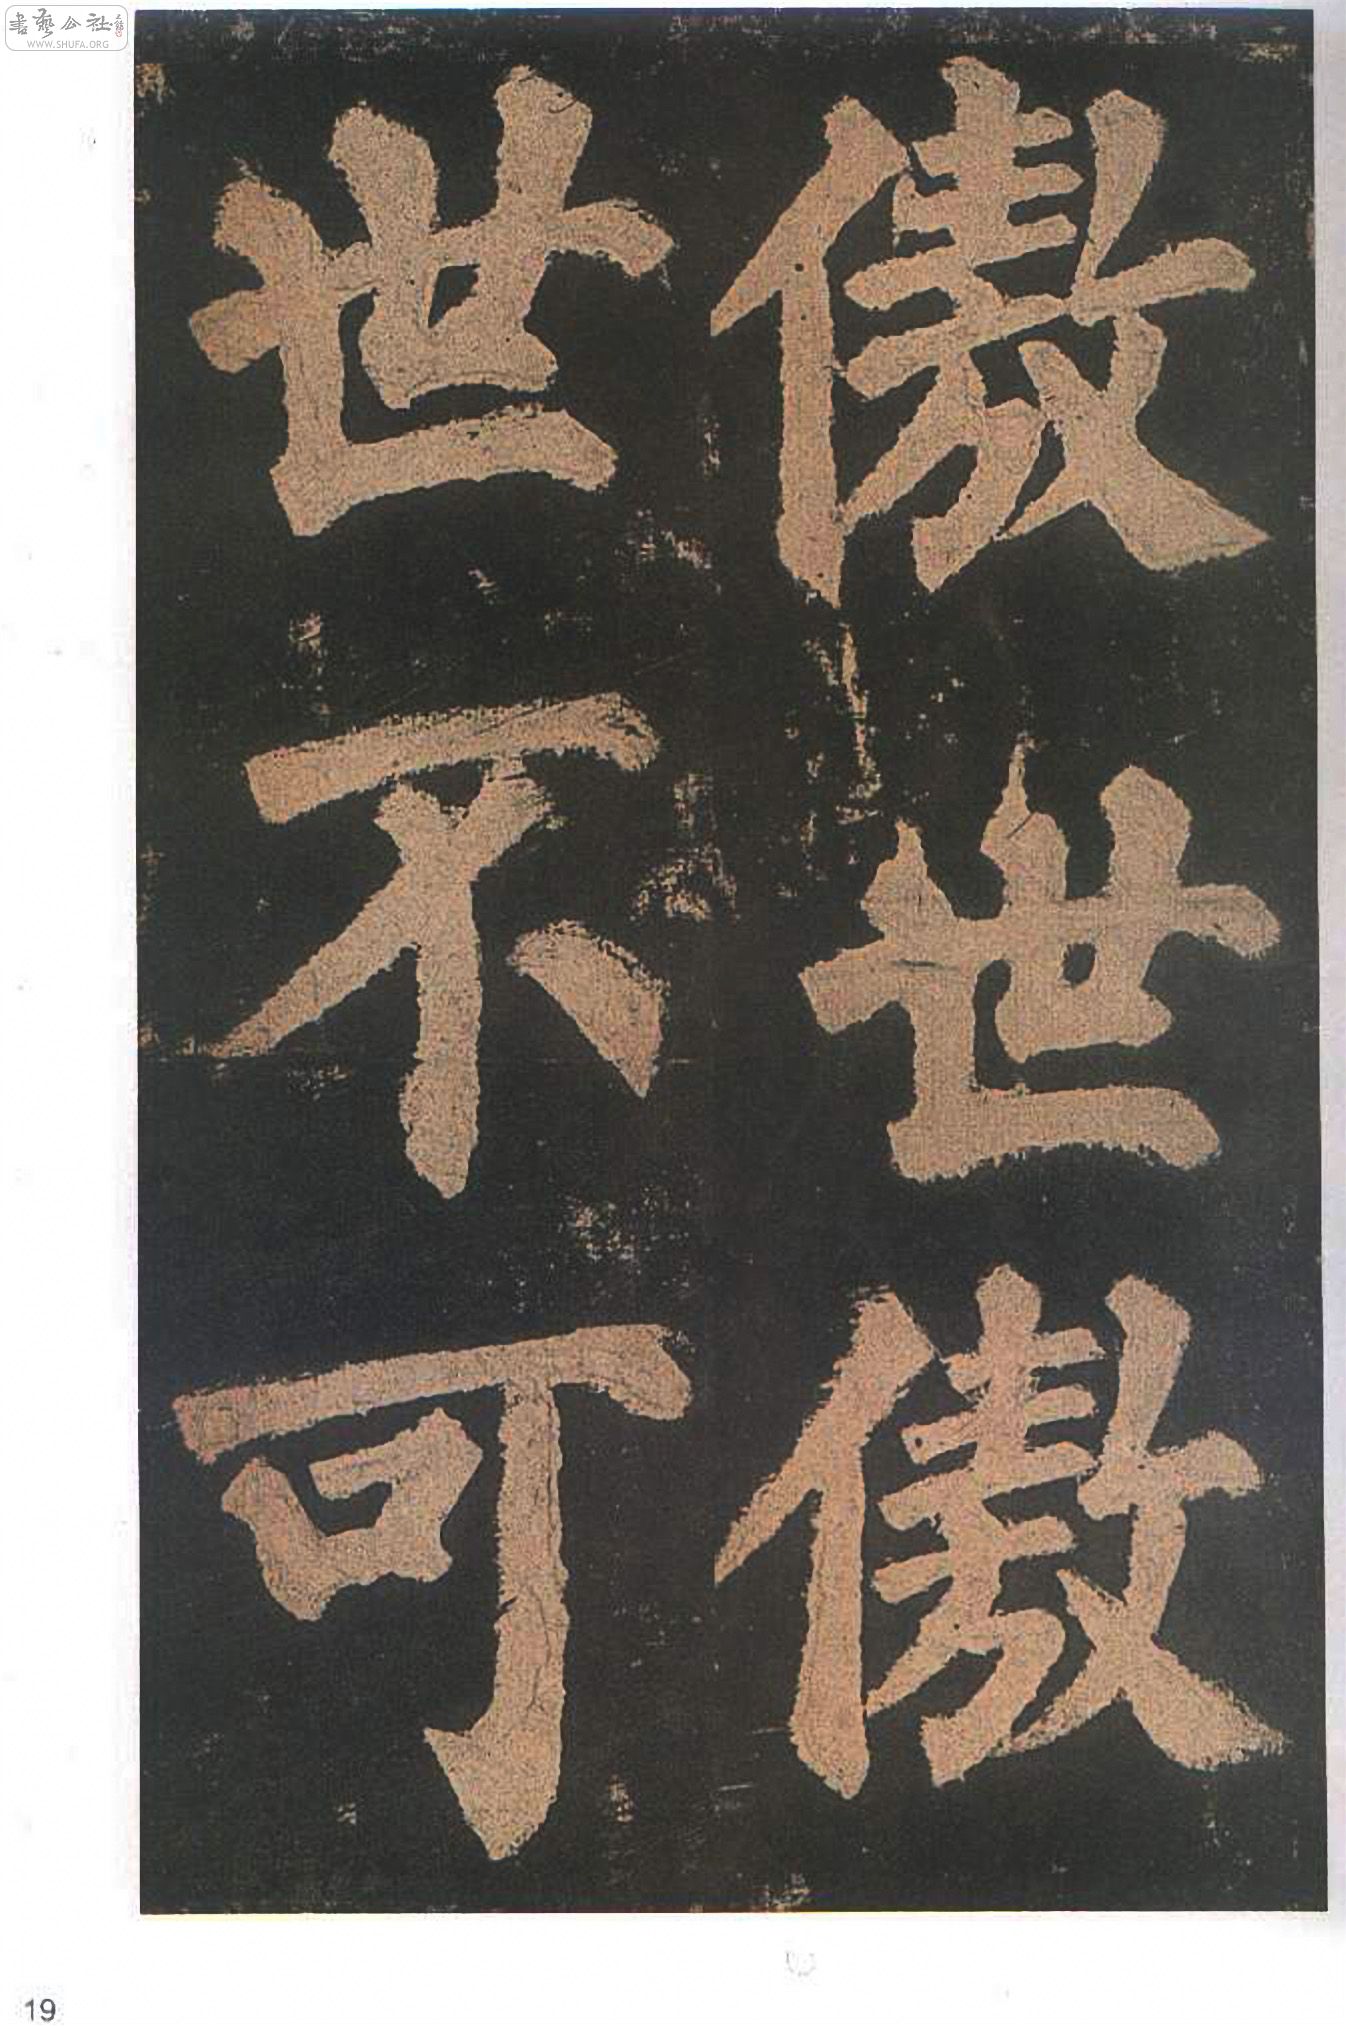 書藝公社
WWW.SHUFA.ORG
傲世傲
世不可
19